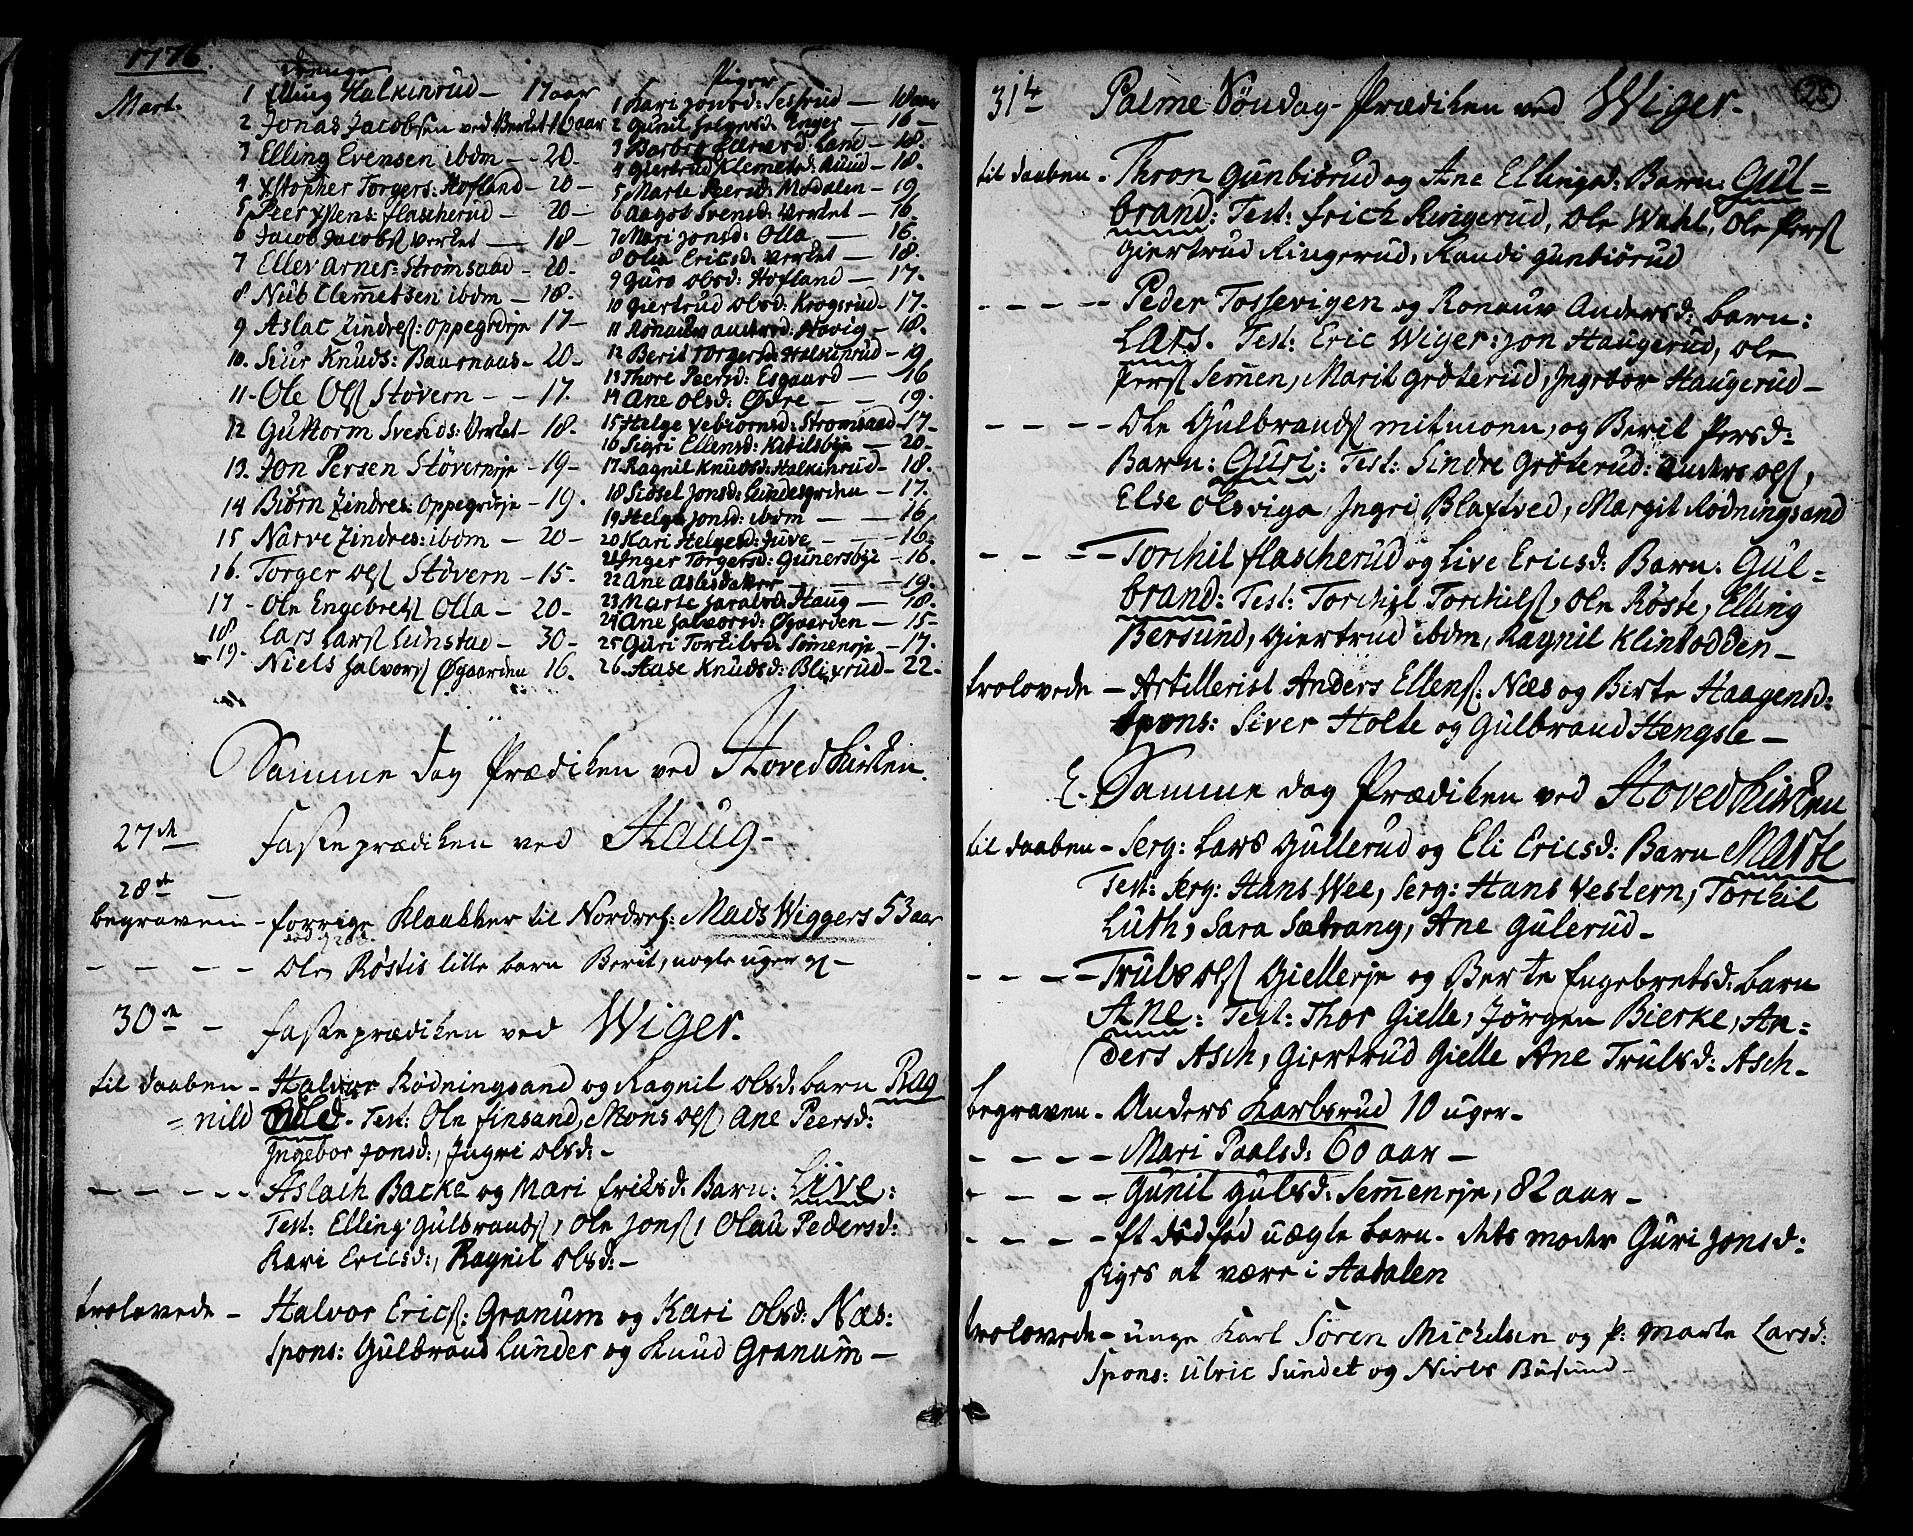 1776.
Mart.
Drenge
1 Elling Halkinrud — 17 aar
2 Jonas Jacobsen ved Verket 16 aar
3 Elling Evensen ibdm — 20.
4 Xstopher Torgers: Hofland — 20 —
5 Peer Xstens: flascherud — 20 —
6 Jacob Jacobs Verket — 18 —
7 Ellev Arnes: Strømsaad — 20 —
8 Nub Clemetsen ibdm — 18.
9 Aslac Zindres: Oppegrdrje 17 —
10. Siur Knuds: Baurnaas — 20 —
11 - Ole Ols Støvern — 17.
12 Guttorm Svends: Verket — 18.
13. Jon Persen Støvernrje — 19 —
14 Biørn Zindres: Oppegrdrje — 19.
15 Narve Zindres: ibdm — 20 —
16. Torger Ols Støvern — 15.
17 - Ole Engebrets Olla — 20 —
18 Lars Lars Lunstad — 30 —
19. Niels Halvors Øgaarden 16.
Piger
1 Kari Jonsd: Tessrud — 18 aar
2 Gunil Halvorsd: Enger — 16 —
3 Barbro Halvorsd: Land — 18.
4 Giertrud Klemetsd: Ruud — 18.
5 Marte Peersd: Modalen — 19
6 Aagot Svensd: Verket — 16.
7 Mari Jonsd: Olla — 16.
8 Olia Ericsd: Verket — 18.
9 Guro Olsd: Hofland — 17.
10 Giertrud Olsd: Krogsrud — 17.
11 Ronauw Andersd: Hovig — 18.
12 Berit Torgersd: Halkinrud — 19
13 Thore Peersd: Esgaard — 16
14 Ane Olsd:Ødre — 19.
15 Helge Vebiornsd: Stromsaad — 17 —
16 Sigri Ellensd: Ketilsbye — 20 —
17 Ragnil Knudsd: Halkinrud — 18.
18 Sidsel Jonsd: Lundesgrden — 17.
19 Helge Jonsd: ibdm — 16
20 Kari Helgesd: Juve — 16.
21 Inger Torgersd: Gunersbye — 16.
22 Ane Aslesd — 19.
23 Marte Haralsd: Haug — 18.
24 Ane Halvorsd: Øgaarden — 15 —
25 Guri Torkilsd: Semenrje — 17.
26. Aase Knudsd: Blixrud — 22.
Samme dag Prædiken ved Hoved Kirken.
27de Fasteprædiken ved Haug —
28de
begraven — forrige Klokker til Nordrehf: Mads Wiggers 53 aar
— — — — Ole Røstis lille barn Berit, nogle uger gl —
30de — Fasteprædiken ved Wiger.
til daaben — Halvor Rødningsand og Ragnil Olsd: barn Rag
= nild. Test: Ole finsand, Mons Ols Ane Peersd:
Ingebor Jonsd:, Ingri Olsd: —
— — — — Aslach Backe og Mari Eriksd: Barn: Live:
Test: Elling Gulbrands, Ole Jons, Olau Pedersd:
Kari Ericsd:, Ragnil Olsd: —
trolovede — Halvor Erics: Granum og Kari Olsd: Næs:
Spons: Gulbrand Lunder og Knud Granum —
25
31te Palme Søndag Prædiken ved Wiger.
til daaben — Thron Gunbiørud og Ane Ellingsd: Barn: Gul=
brand: Test: Erich Ringerud, Ole Wahl, Ole Pers
Giertrud Ringerud, Randi Gunbiørud
— — — — Peder Tossevigen og Ronauv Andersd: barn:
Lars. Test: Eric Wiger: Jon Haugerud, Ole
Pers Semen, Marit Grøterud, Ingebor Haugerud —
— — — — Ole Gulbrands mitmoen, og Berit Persd:
Barn: Guri: Test: Sindre Grøterud: Anders Ols,
Else Olsviga, Ingri Blaxtved, Margit Rødningsand
— — — — Torchil flascherud og Live Ericsd: Barn: Gul=
brand: Test: Torchil Torchils, Ole Røste, Elling
Bersund, Giertrud ibdm, Ragnil Klinkodden —
trolovede — Artillerist Anders Ellens: Næs og Birte Haagensd:
Spons: Siver Holte og Gulbrand Hengsle —
E. Samme dag Prædiken ved Hoved Kirken
til daaben — Serg: Lars Gullerud og Eli Ericsd: Barn Marte
Test: Serg: Hans Wee, Serg: Hans Vestern, Torchil
Luth, Sara Sætrang, Ane Gulerud —
— — — — Truls Ols Giellerje og Berte Engebretsd: barn
Ane: Test: Thor Gielle, Jørgen Bierke, An=
ders Asch, Giertrud Gielle Ane Trulsd: Asch —
begraven — Anders Karbsrud 10 uger —
— — — — Mari Paalsd: 60 aar —
— — — — Gunil Gulsd: Semenrje, 82 aar —
— — — — Et dødfød uægte barn — dets moder Guri Jonsd:
siges at være i Aadalen
trolovede — unge Karl Søren Mickelsen og P: Marte Larsd:
Spons: Ulric Sundet og Niels Busund —